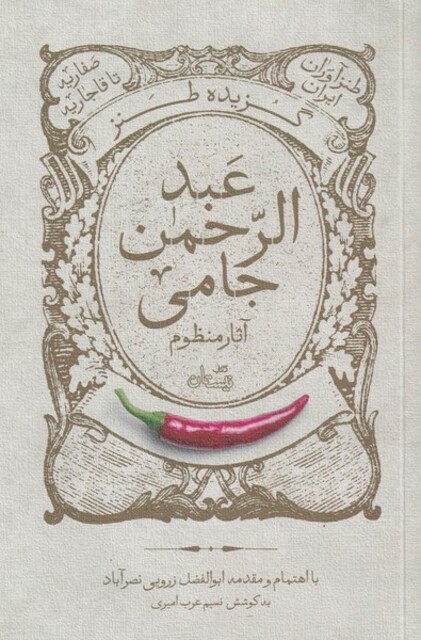 طنزآوران
ایران
صفاریه
تا قاجاریه
گزیده طنز
عَبد
الرّحمٰن
جامی
آثار منظوم
نیستان
با اهتمام و مقدمه ابوالفضل زرویی نصرآباد
به کوشش نسیم عرب امیری